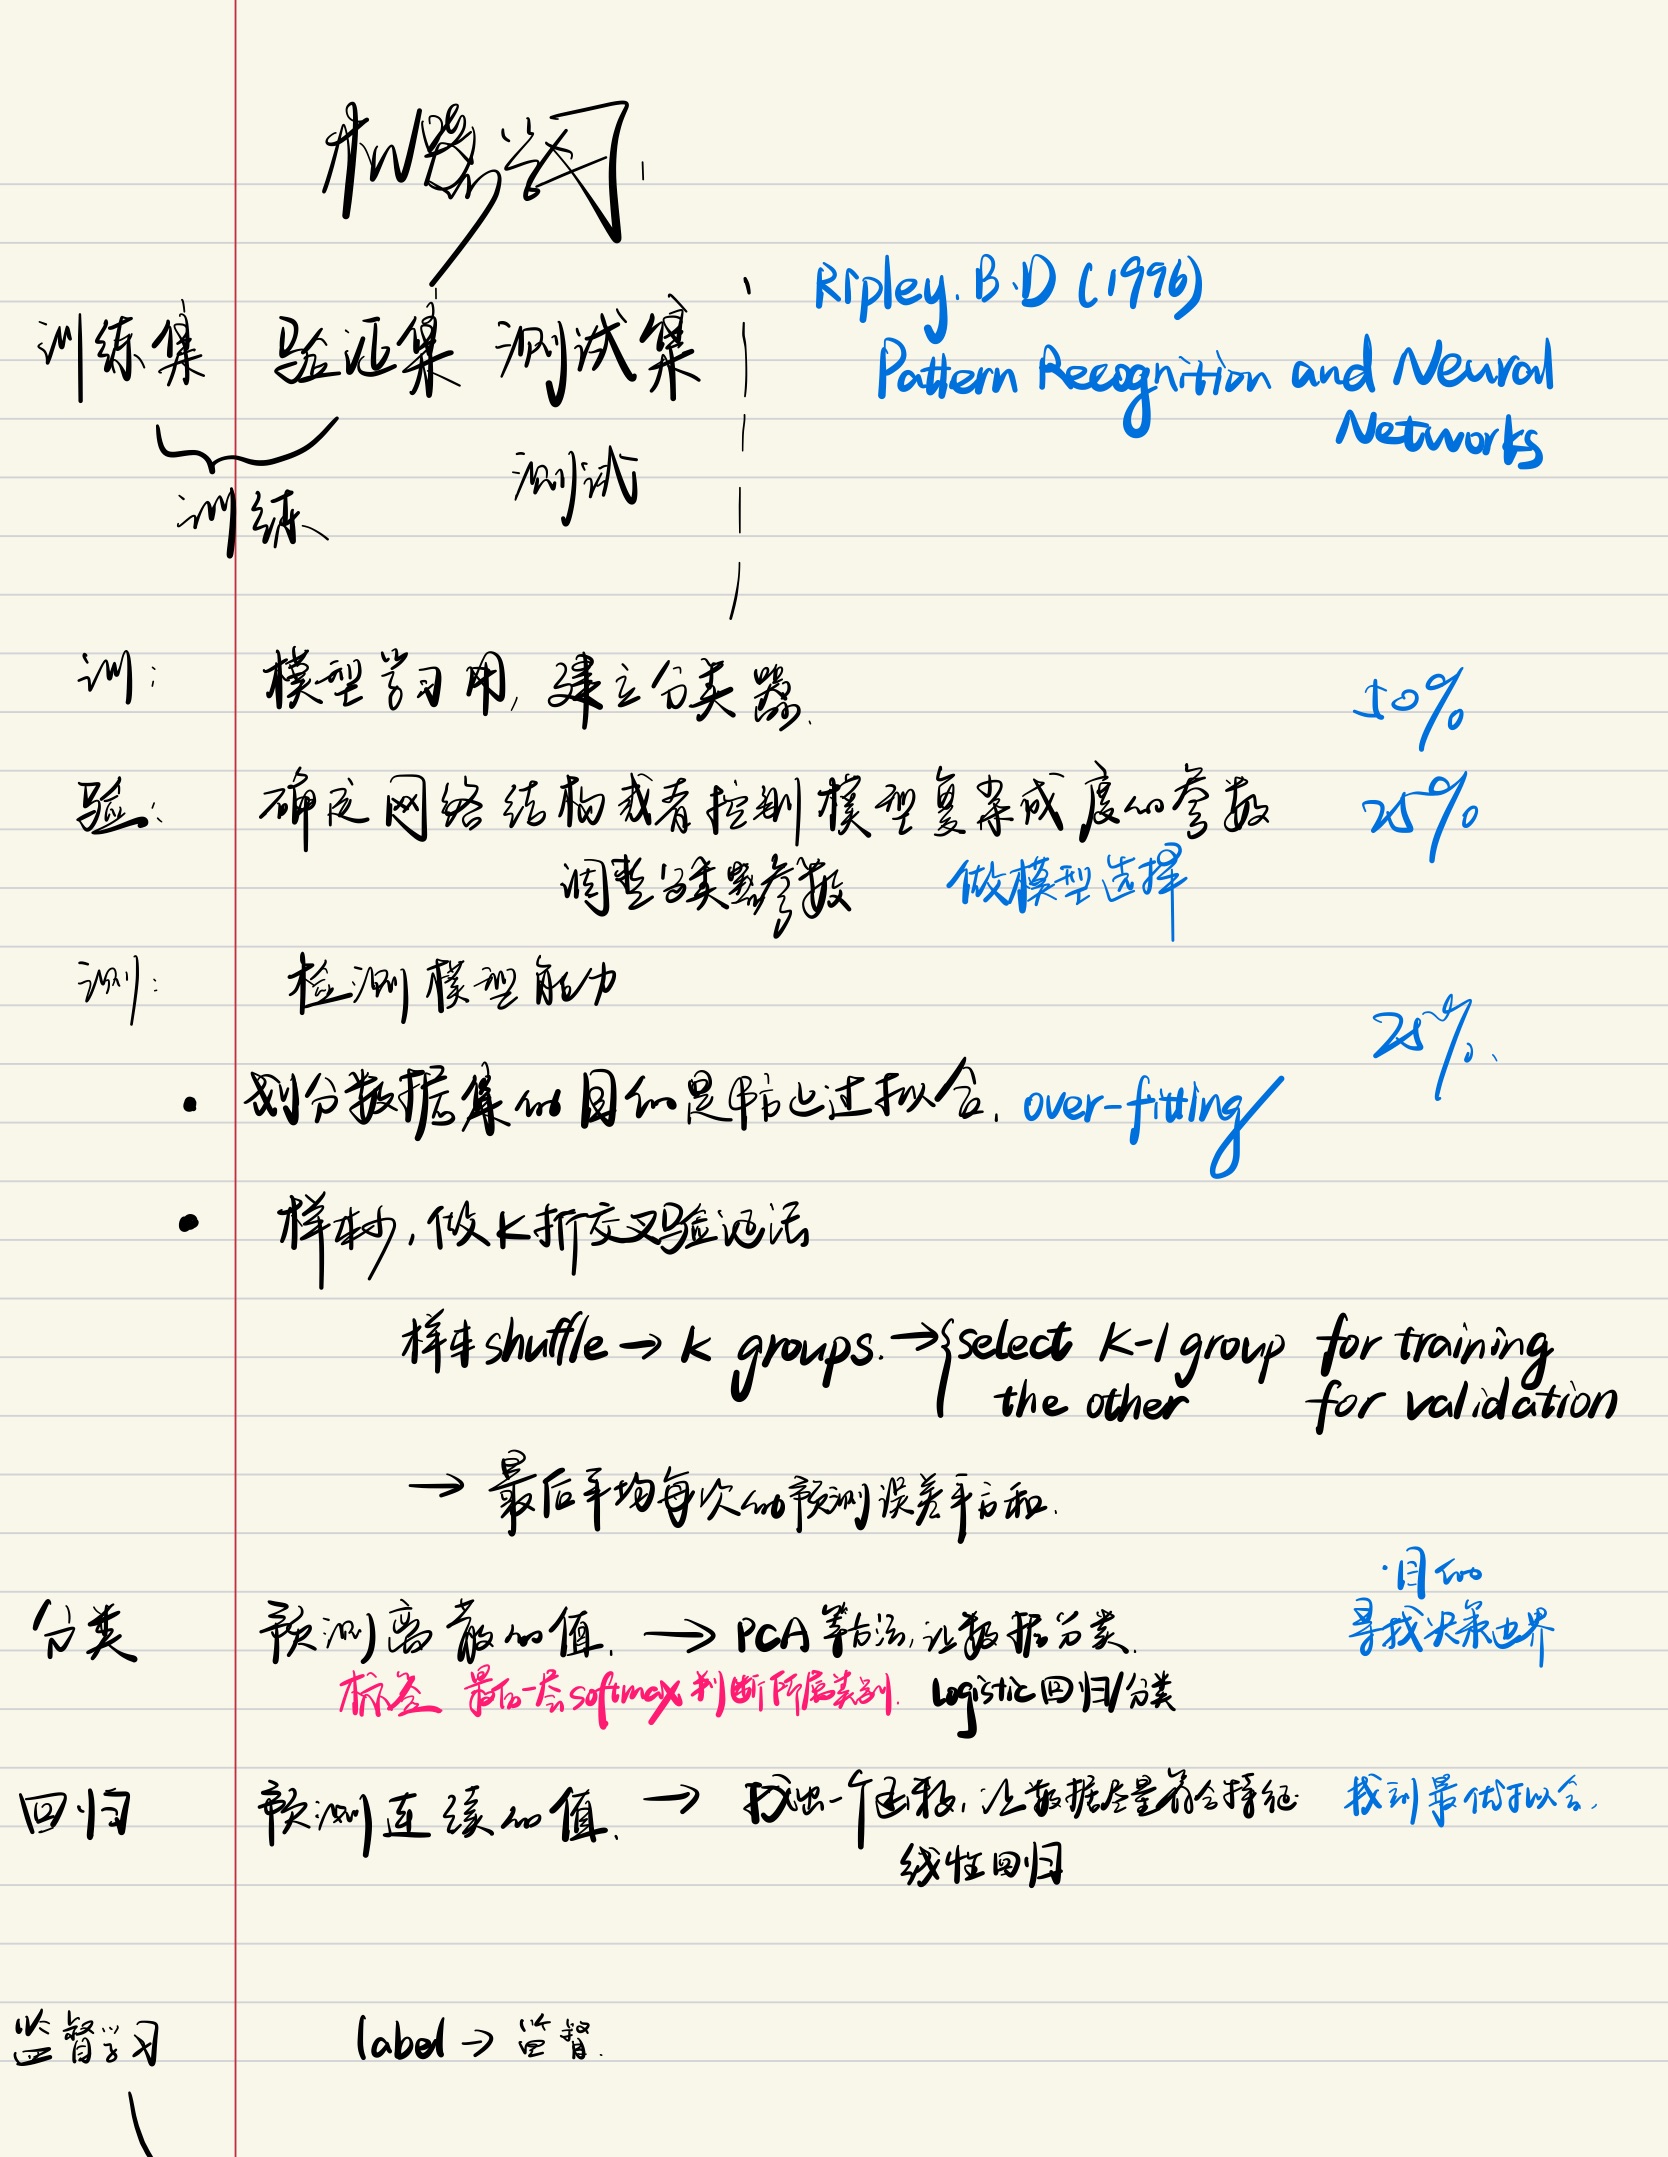 机器学习.
Ripley. B.D (1996)
训练集 验证集 测试集
Pattern Recognition and Neural
Networks
训练 测试
训: 模型学习用, 建立分类器. 50%
验: 确定网络结构或者控制模型复杂成度的参数 25%
调整分类器参数 做模型选择
测: 检测模型能力 25%.
• 划分数据集的目的是防止过拟合. over-fitting
• 样本少, 做K折交叉验证法
样本shuffle → K groups. → { select K-1 group for training
the other for validation
→ 最后平均每次的预测误差平方和.
·目的
分类 预测离散的值. → PCA等方法, 让数据分类. 寻找决策边界
标签 最后一层softmax判断所属类别. Logistic回归/分类
回归 预测连续的值. → 找出一个函数, 让数据尽量符合特征 找到最优拟合.
线性回归
监督学习 label → 监督.